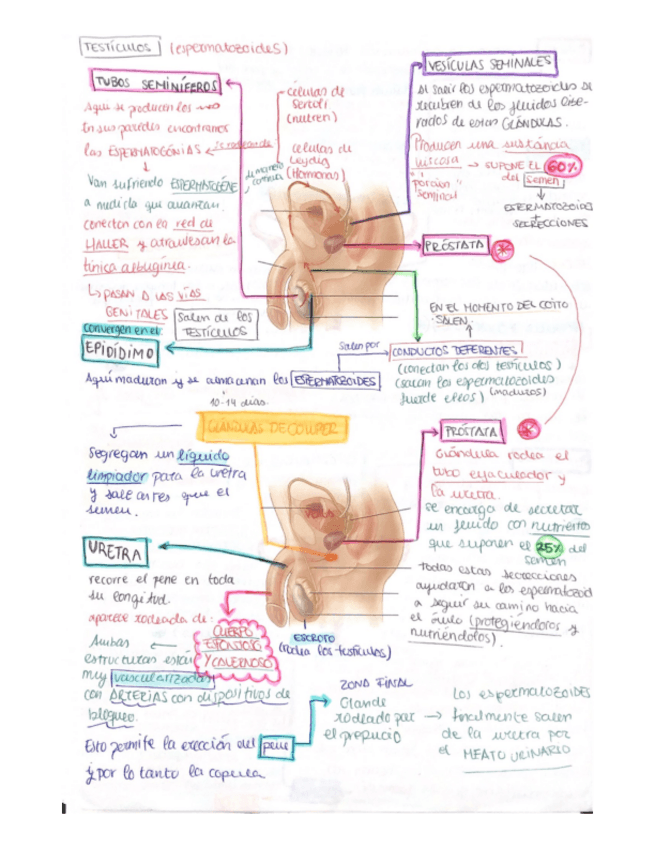 TESTÍCULOS (espermatozoides)
TUBOS SEMINÍFEROS
Aquí se producen los
En sus paredes encontramos
las ESPERMATOGONIAS
is rodeada de
Van sufriendo ESPERMATOGÉNE
a medida que avanzan.
conectan con la red de
HALLER y atraviesan la
túnica albugínea.
↳ PASAN A LAS VÍAS
GENITALES
convergen en el:
Salen de los
TESTÍCULOS
EPIDÍDIMO
células de
Sertoli
(nutren)
células de
Leydig
(Hormonas)
VESÍCULAS SEMINALES
Al salir los espermatozoides se
recubren de los fluidos libe-
rados de estas GLÁNDULAS.
Producen una sustancia
viscosa → SUPONE EL 60%
del semen
"porción
seminal"
ESPERMATOZOIDES
+
SECRECIONES
PRÓSTATA
EN EL MOMENTO DEL COITO
SALEN.
Salen por
CONDUCTOS DEFERENTES
(conectan los dos testículos)
(sacan los espermatozoides
fuera de ellos) (maduros)
Aquí maduran y se almacenan los ESPERMATOZOIDES
10-14 días.
GLÁNDULAS DE COWPER
Segregan un líquido
limpiador para la uretra
y sale antes que el
semen.
PRÓSTATA
Glándula rodea el
tubo eyaculador y
la uretra.
se encarga de secretar
un fluido con nutrientes
que suponen el 25% del
semen
Todas estas secreciones
ayudaran a los espermatozoid
a seguir su camino hacia
el óvulo (protegiéndolos y
nutriéndolos).
URETRA
recorre el pene en toda
su longitud.
aparece rodeada de:
CUERPO
ESPONJOSO
Y CAVERNOSO
ESCROTO
(rodea los testículos)
Ambas
estructuras están
muy vascularizadas
con ARTERIAS con dispositivos de
bloqueo.
Esto permite la erección del pene
y por lo tanto la copula
ZONA FINAL
Glande
rodeado por →
el prepucio
Los espermatozoides
finalmente salen
de la uretra por
el MEATO URINARIO